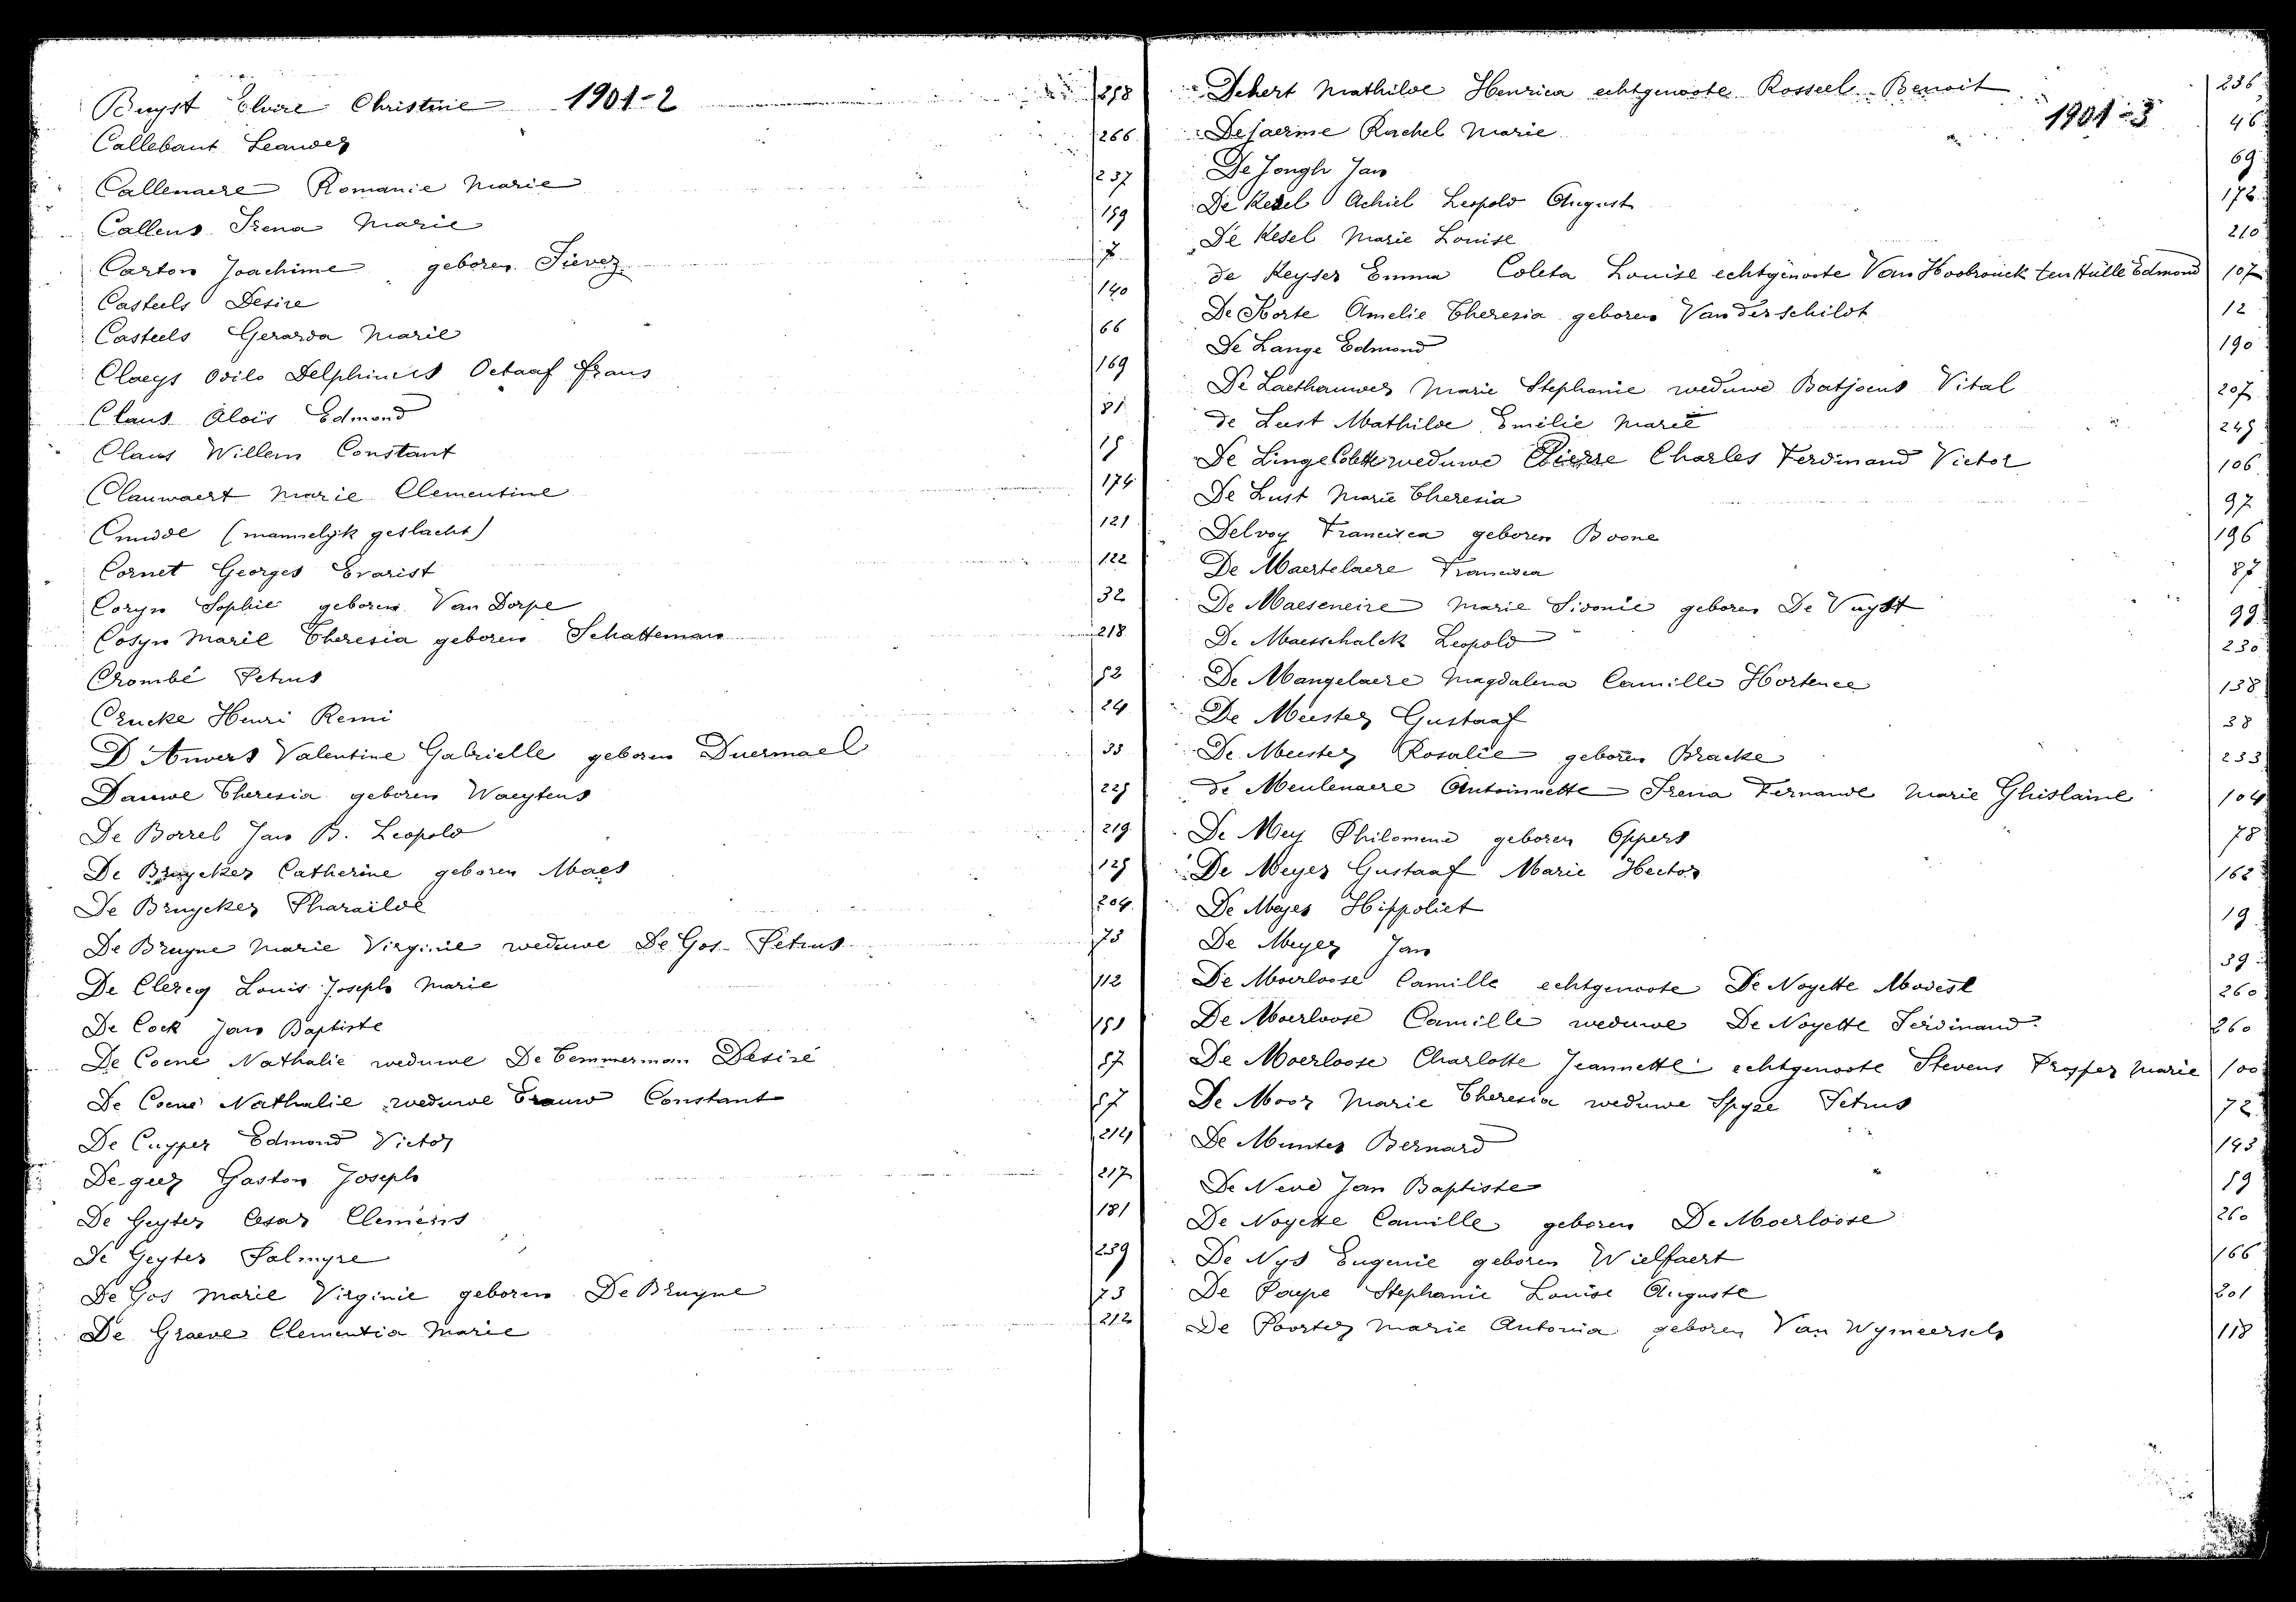 Buyst Elvire Christine 1901-2 258
Callebaut Leander 266
Callenaere Romanie Marie 237
Callens Irena Marie 159
Carton Joachime geboren Sierez 7
Casteels Desire 140
Casteels Gerarda Marie 66
Claeys Odilo Delphinus Octaaf Frans 169
Claus Aloïs Edmond 81
Claus Willem Constant 15
Clauwaert Marie Clementine 174
Cnudde (mannelijk geslacht) 121
Cornet Georges Evarist 122
Coryn Sophie geboren Van Dorpe 32
Cosyn Marie Theresia geboren Schatteman 218
Crombé Petrus 52
Crucke Henri Remi 24
D'Anvers Valentine Gabrielle geboren Duermael 33
Dauwe Theresia geboren Waeytens 225
De Borrel Jan B. Leopold 219
De Bruycker Catherine geboren Maes 125
De Bruycker Pharaïlde 204
De Bruyne Marie Virginie weduwe De Gos Petrus 73
De Clercq Louis Joseph Marie 112
De Cock Jan Baptiste 151
De Coene Nathalie weduwe De Temmerman Desiré 57
De Coene Nathalie weduwe Trauw Constant 57
De Cuyper Edmond Victor 214
De geer Gaston Joseph 217
De Geyter Cesar Clemens 181
De Geyter Palmyre 239
De Gos Marie Virginie geboren De Bruyne 73
De Graeve Clementia Marie 212
Dehert Mathilde Henrica echtgenoote Rosseel Benoit 236
1901-3
Dejaerme Rachel Marie 46
De Jongh Jan 69
De Kesel Achiel Leopold August 172
De Kesel Marie Louise 210
de Keyser Emma Coleta Louise echtgenoote Van Hoobrouck ten Hulle Edmond 107
De Korte Amelie Theresia geboren Vanderschildt 12
De Lange Edmond 190
De Laethauwer Marie Stephanie weduwe Batjoens Vital 207
de Lust Mathilde Emilie Marie 245
De Linge Colette weduwe Pierre Charles Ferdinand Victor 106
De Lust Marie Theresia 97
Delvoy Francisca geboren Boone 196
De Maertelaere Francisca 87
De Maeseneire Marie Sidonie geboren De Vuyst 99
De Maesschalck Leopold 230
De Mangelaere Magdalena Camille Hortence 138
De Meester Gustaaf 38
De Meester Rosalie geboren Bracke 233
de Meulenaere Antoinnette Irena Fernande Marie Ghislaine 104
De Mey Philomene geboren Eppers 78
De Meyer Gustaaf Marie Hector 162
De Meyer Hippoliet 19
De Meyer Jan 39
De Moerloose Camille echtgenoote De Noyette Modest 260
De Moerloose Camille weduwe De Noyette Ferdinand 260
De Moerloose Charlotte Jeannette echtgenoote Stevens Prosper Marie 100
De Moor Marie Theresia weduwe Spyre Petrus 72
De Munter Bernard 143
De Neve Jan Baptiste 59
De Noyette Camille geboren De Moerloose 260
De Nys Eugenie geboren Wielfaert 166
De Paepe Stephanie Louise Auguste 201
De Poorter Marie Antonia geboren Van Wymeersch 118